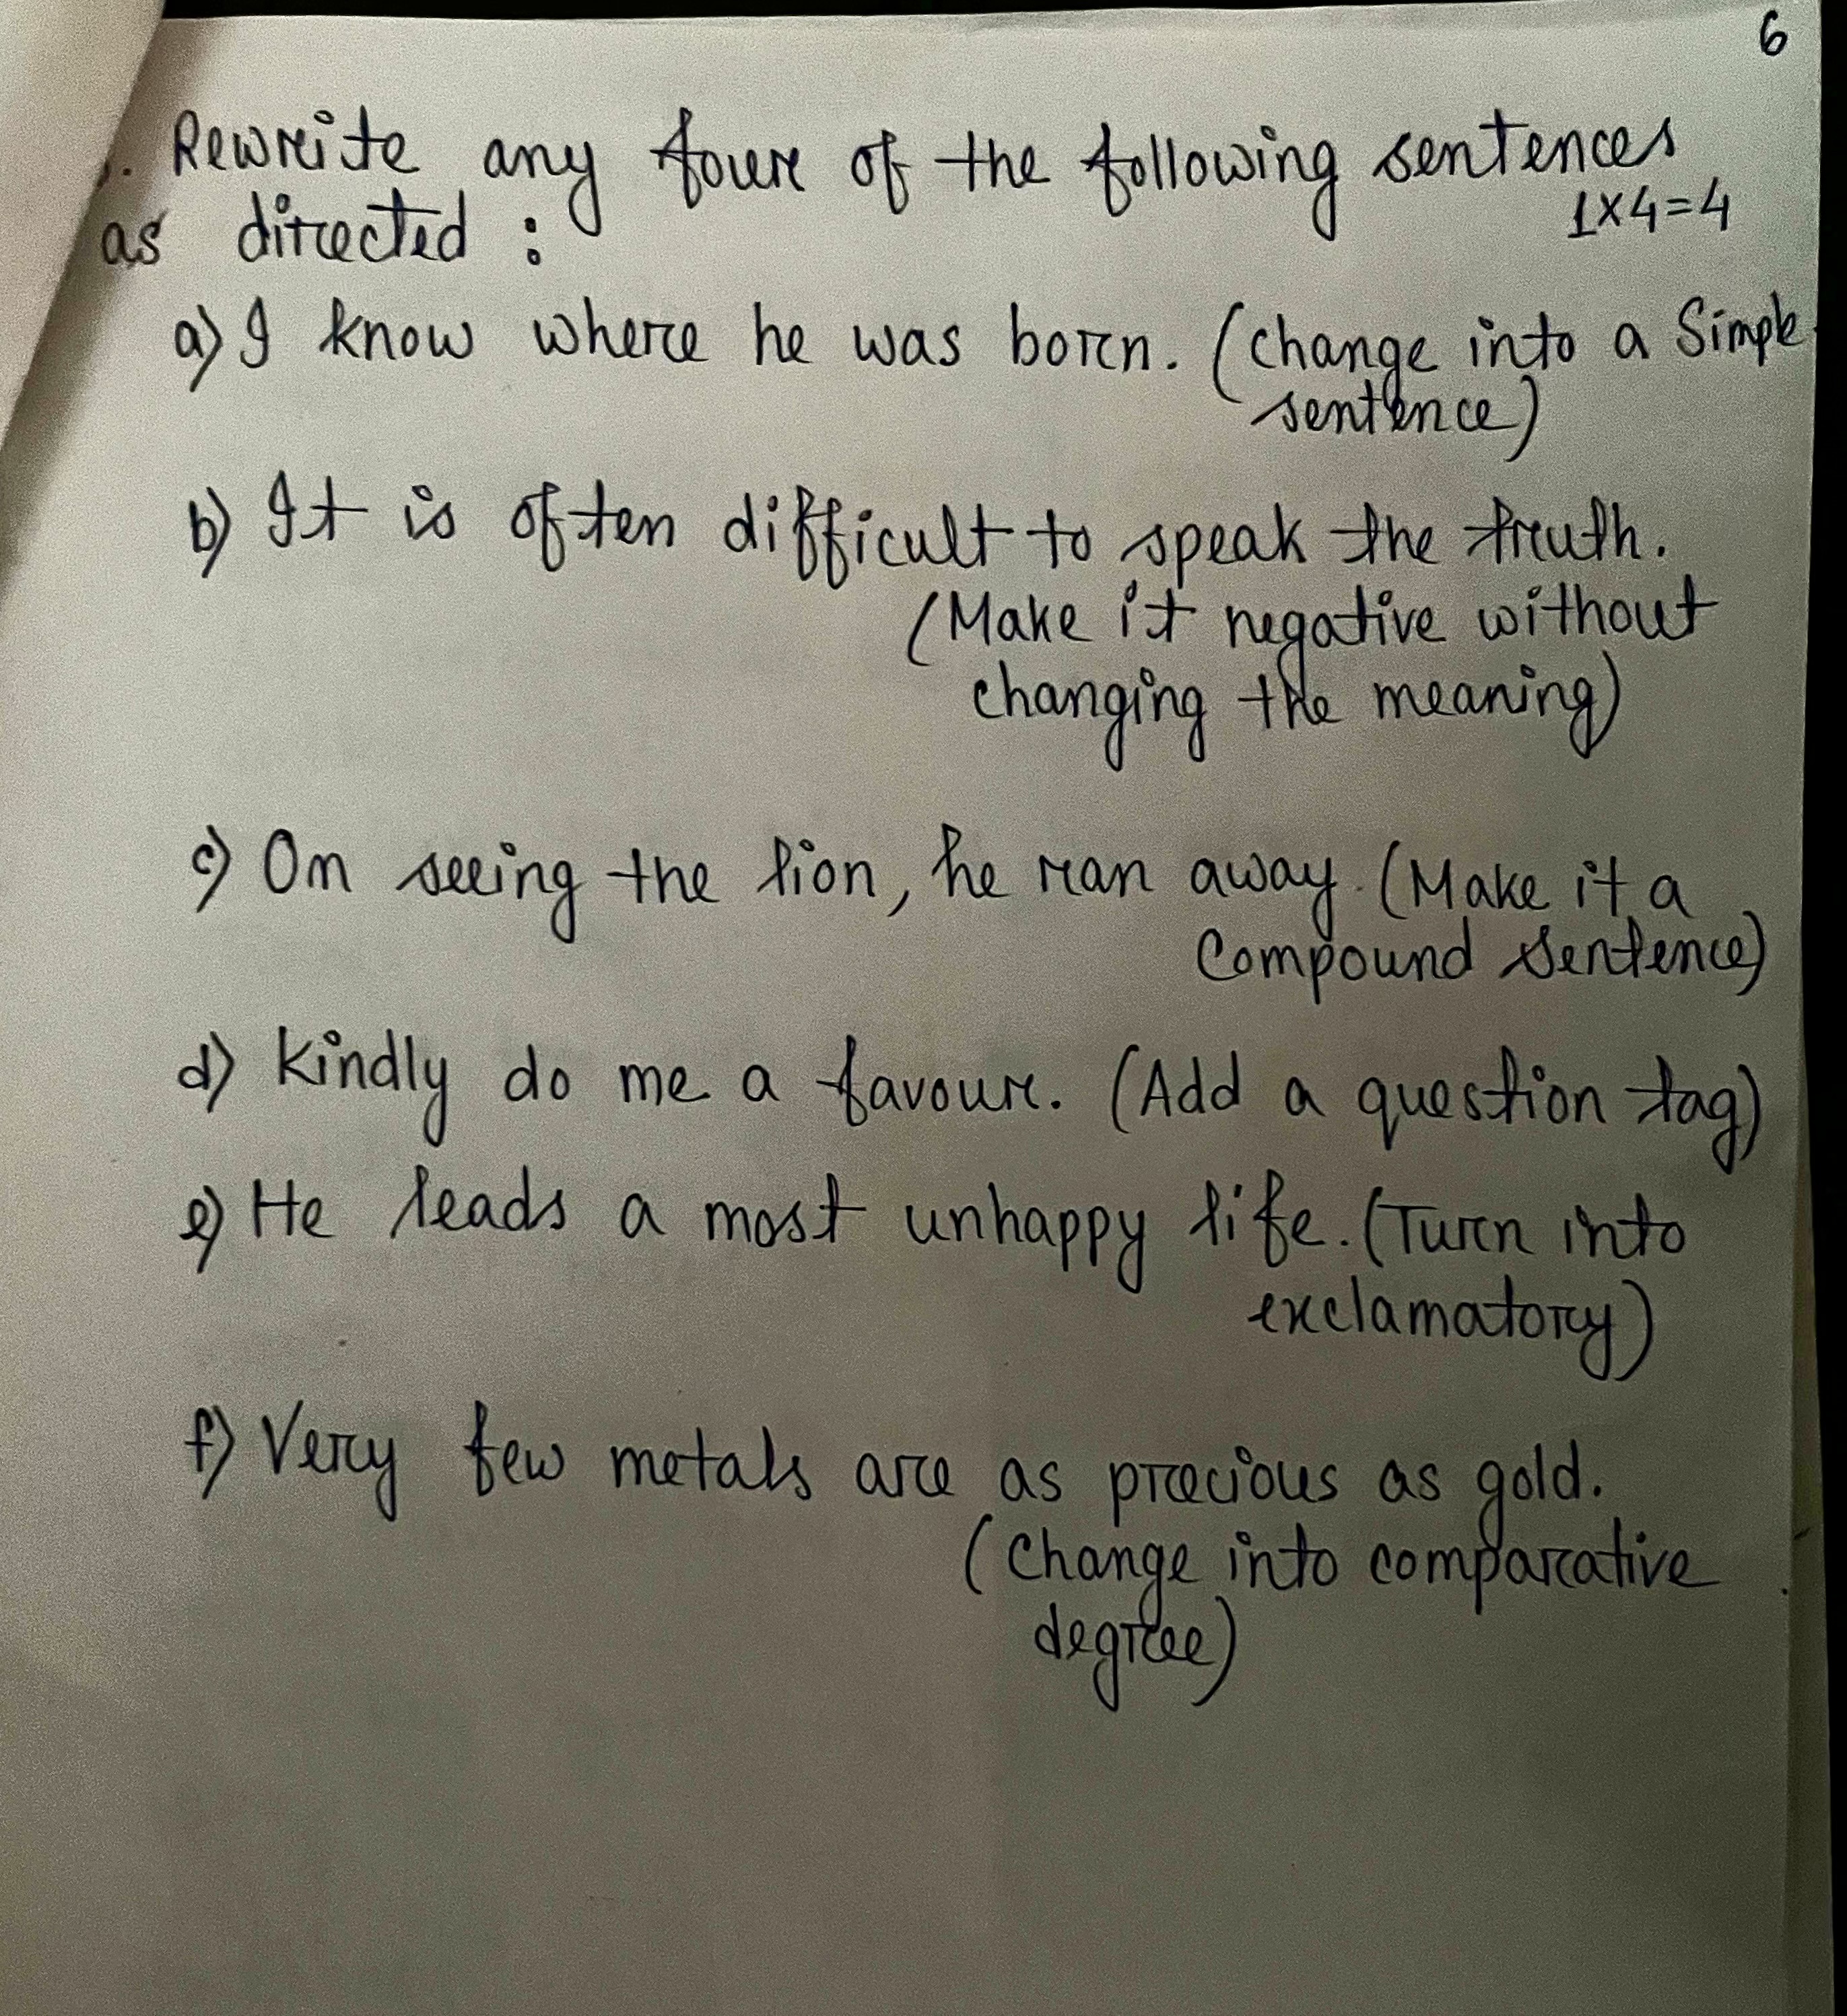 6
. Rewrite any four of the following sentences
1x4=4
as directed :
a) I know where he was born. (Change into a Simple
sentence)
b) It is often difficult to speak the truth.
(Make it negative without
changing the meaning)
c) On seeing the lion, he ran away. (Make it a
Compound Sentence)
d) Kindly do me a favour. (Add a question tag)
e) He leads a most unhappy life. (Turn into
exclamatory)
f) Very few metals are as precious as gold.
(Change into comparative
degree)